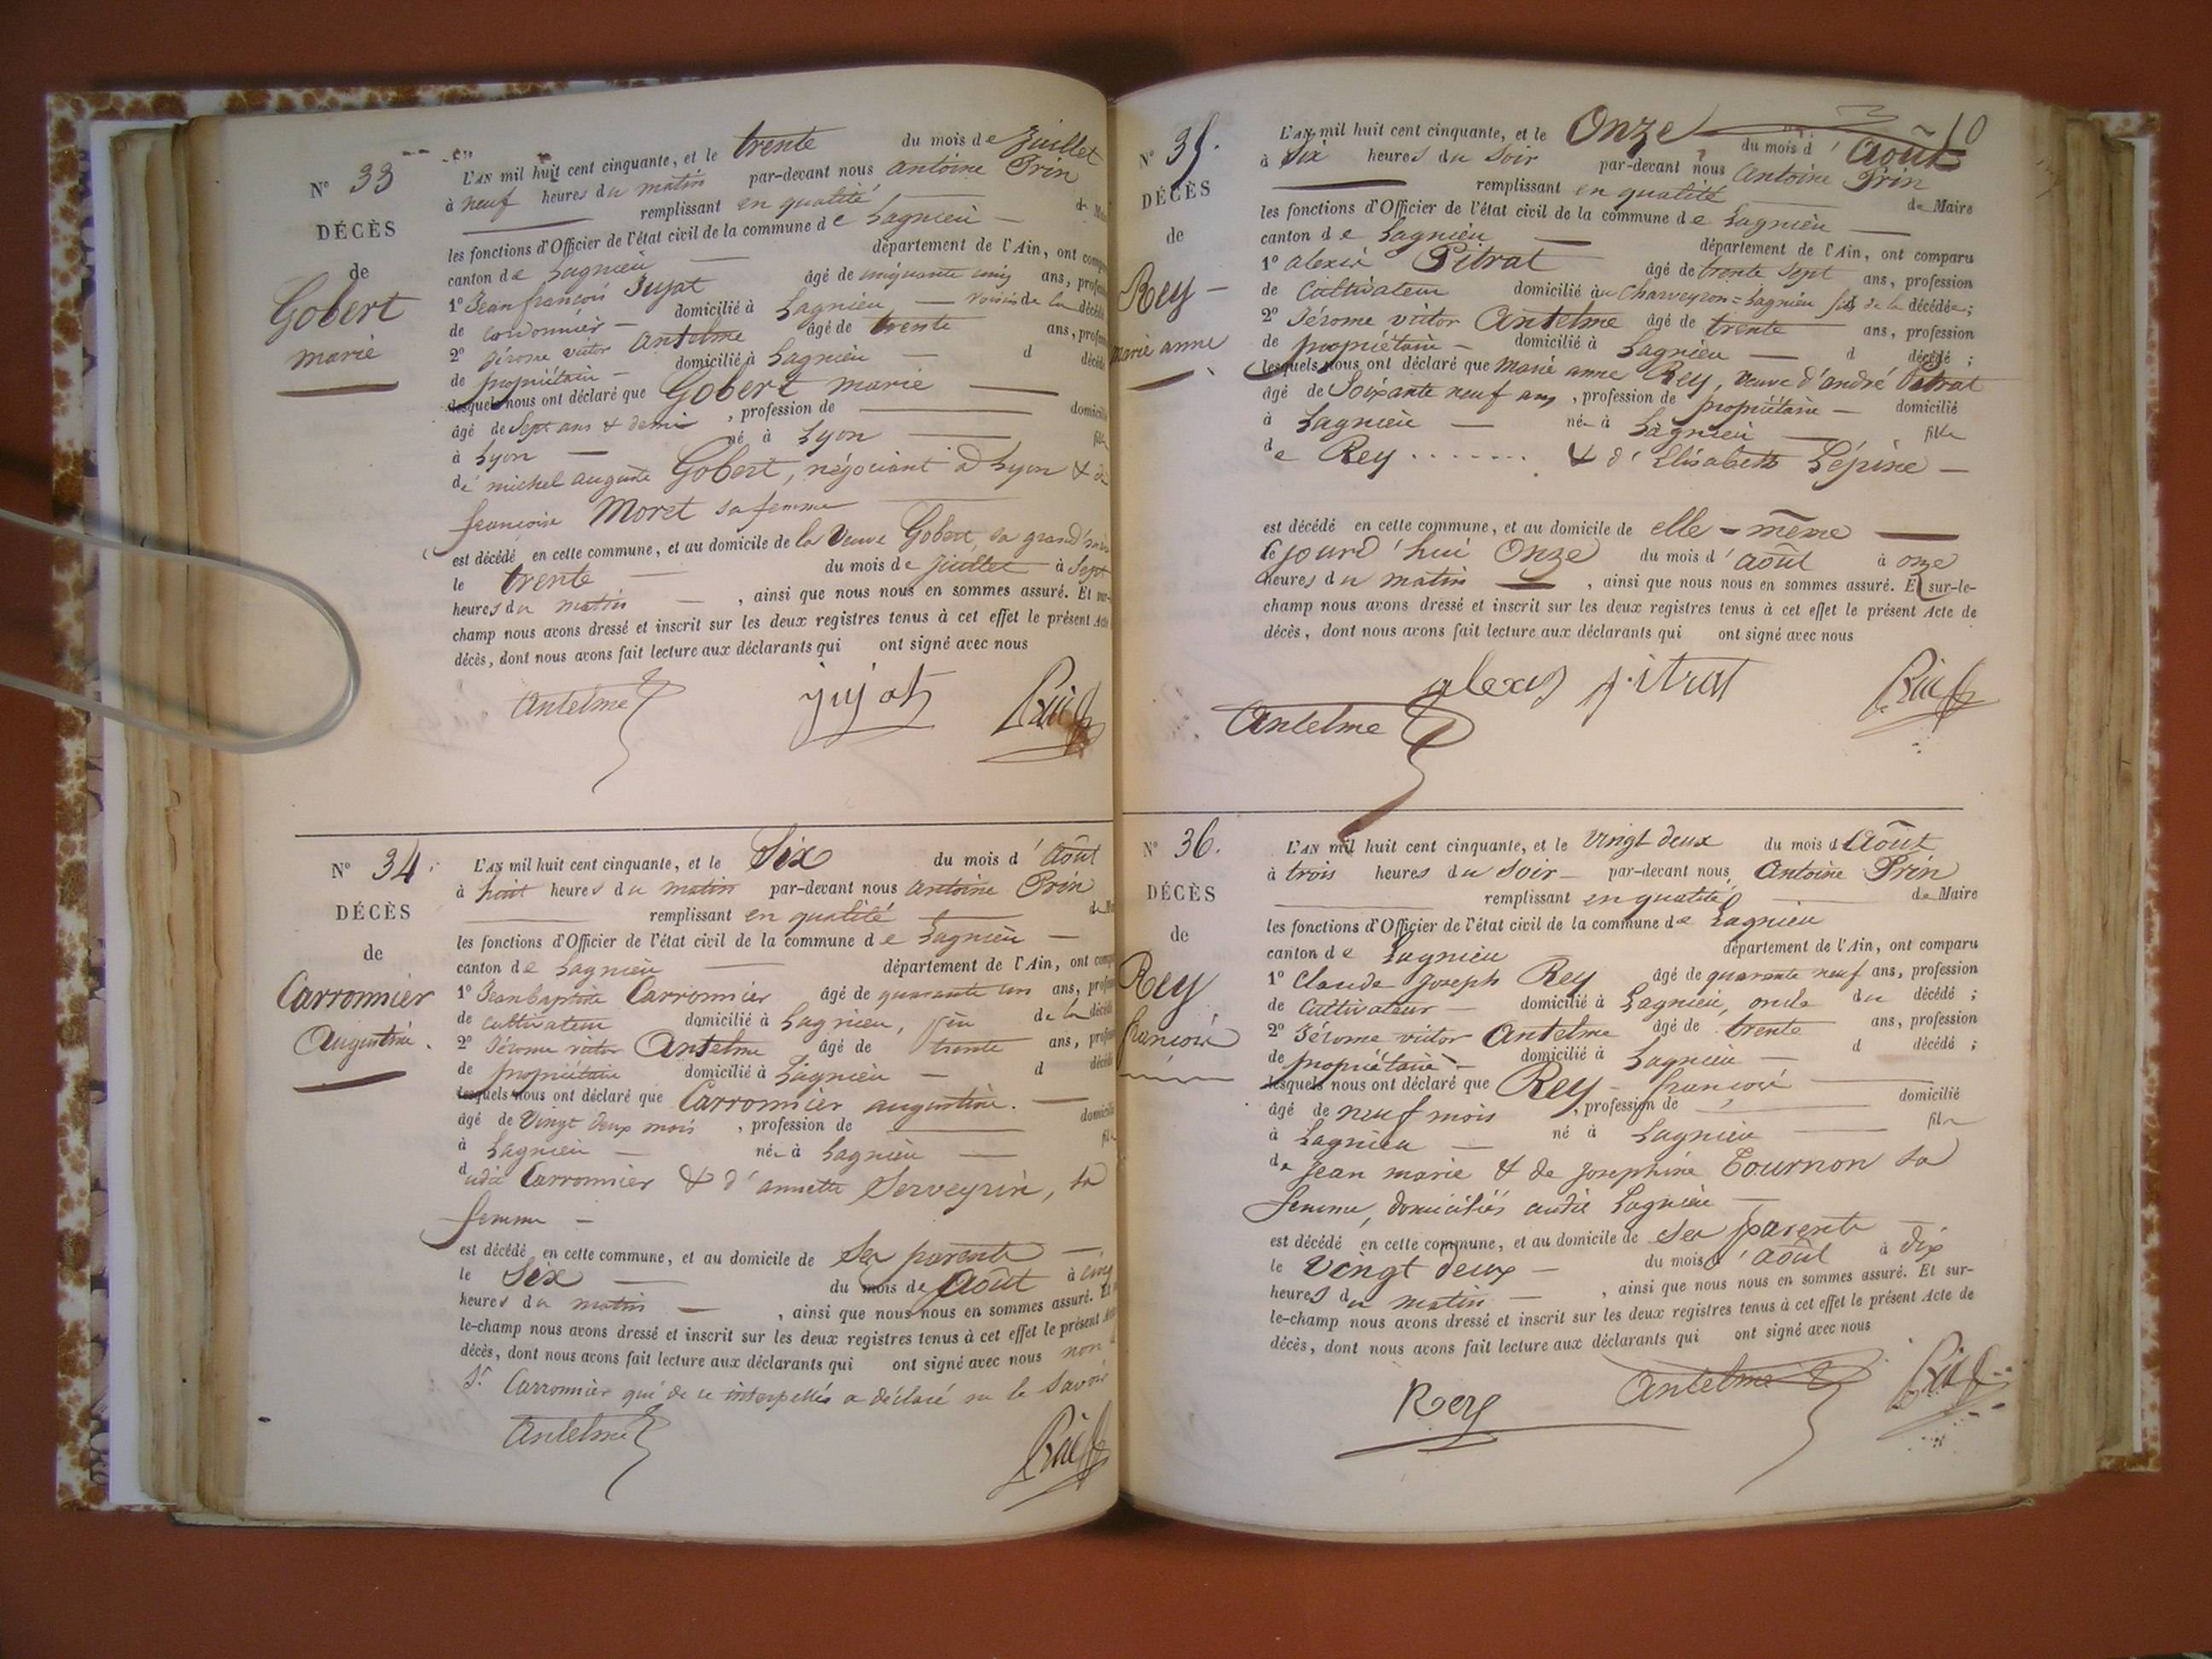 N° 33
DÉCÈS
de
Gobert
marie
L'AN mil huit cent cinquante, et le trente du mois de Juillet
à neuf heures du matin par-devant nous antoine Prin
remplissant en qualité de Maire
les fonctions d'Officier de l'état civil de la commune de Lagnieu
canton de Lagnieu département de l'Ain, ont comparu
1° Jean françois Jujat âgé de cinquante cinq ans, profession
de cordonnier domicilié à Lagnieu voisin de la décédé
2° Jérome victor Antelme âgé de trente ans, profession
de propriétaire domicilié à Lagnieu d décédé
lesquels nous ont déclaré que Gobert marie
âgé de Sept ans & demi , profession de domicilié
à Lyon né à Lyon fille
de michel auguste Gobert, négociant à Lyon & de
françoise Moret sa femme
est décédé en cette commune, et au domicile de la Veuve Gobert, sa grand'mère
le trente du mois de juillet à Sept
heures du matin , ainsi que nous nous en sommes assuré. Et sur-
champ nous avons dressé et inscrit sur les deux registres tenus à cet effet le présent Acte
décès, dont nous avons fait lecture aux déclarants qui ont signé avec nous
Antelme jujat Prin
N° 34
DÉCÈS
de
Carronnier
Augustine
L'AN mil huit cent cinquante, et le Six du mois d'Août
à huit heures du matin par-devant nous antoine Prin
remplissant en qualité de
les fonctions d'Officier de l'état civil de la commune de Lagnieu
canton de Lagnieu département de l'Ain, ont comparu
1° Jean baptiste Carronnier âgé de quarante un ans, profession
de cultivateur domicilié à Lagnieu, de la décédé
2° Jérome victor Antelme âgé de trente ans, profession
de propriétaire domicilié à Lagnieu d décédé
lesquels nous ont déclaré que Carronnier augustine.
âgé de Vingt deux mois , profession de domicilié
à Lagnieu née à Lagnieu fille
dudit Carronnier & d'annette Serveyrin, sa
femme
est décédé en cette commune, et au domicile de Ses parents
le Six du mois de Août à cinq
heures du matin , ainsi que nous nous en sommes assuré. Et
le-champ nous avons dressé et inscrit sur les deux registres tenus à cet effet le présent Acte
décès, dont nous avons fait lecture aux déclarants qui ont signé avec nous non
Sr Carronnier qui de ce interpellés a déclaré ne le Savoir
Antelme Prin
10
N° 35.
DÉCÈS
de
Rey
marie anne
L'AN mil huit cent cinquante, et le Onze du mois d'Août
à Six heures du Soir par-devant nous Antoine Prin
remplissant en qualité de Maire
les fonctions d'Officier de l'état civil de la commune de Lagnieu
canton de Lagnieu département de l'Ain, ont comparu
1° alexis Pitrat âgé de trente Sept ans, profession
de Cultivateur domicilié au Charveyron = Lagnieu fils de la décédée ;
2° Jérome victor Antelme âgé de trente ans, profession
de propriétaire domicilié à Lagnieu d décédé ;
lesquels nous ont déclaré que Marie anne Rey, veuve d'andré Pitrat
âgé de Soixante neuf ans , profession de propriétaire domicilié
à Lagnieu née à Lagnieu fille
de Rey ....... & d'Elisabeth Lépine
est décédé en cette commune, et au domicile de elle = même
Cejourd'hui Onze du mois d'août à onze
heures du matin , ainsi que nous nous en sommes assuré. Et sur-le-
champ nous avons dressé et inscrit sur les deux registres tenus à cet effet le présent Acte de
décès, dont nous avons fait lecture aux déclarants qui ont signé avec nous
alexis pitrat Prin
Antelme
N° 36.
DÉCÈS
de
Rey
françois
L'AN mil huit cent cinquante, et le Vingt deux du mois d Août
à trois heures du Soir par-devant nous Antoine Prin
remplissant en qualité de Maire
les fonctions d'Officier de l'état civil de la commune de Lagnieu
canton de Lagnieu département de l'Ain, ont comparu
1° Claude Joseph Rey âgé de quarante neuf ans, profession
de Cultivateur domicilié à Lagnieu, oncle du décédé ;
2° Jérome victor Antelme âgé de trente ans, profession
de propriétaire domicilié à Lagnieu d décédé ;
lesquels nous ont déclaré que Rey françois
âgé de neuf mois , profession de domicilié
à Lagnieu né à Lagnieu fils
de Jean marie & de Josephine Tournon Sa
femme, domiciliés audit Lagnieu
est décédé en cette commune, et au domicile de Ses parents
le Vingt deux du mois d'août à dix
heures du matin , ainsi que nous nous en sommes assuré. Et sur-
le-champ nous avons dressé et inscrit sur les deux registres tenus à cet effet le présent Acte de
décès, dont nous avons fait lecture aux déclarants qui ont signé avec nous
Rey Antelme Prin